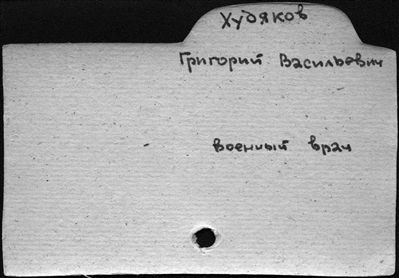 Худяков
Григорий Васильевич
военный врач